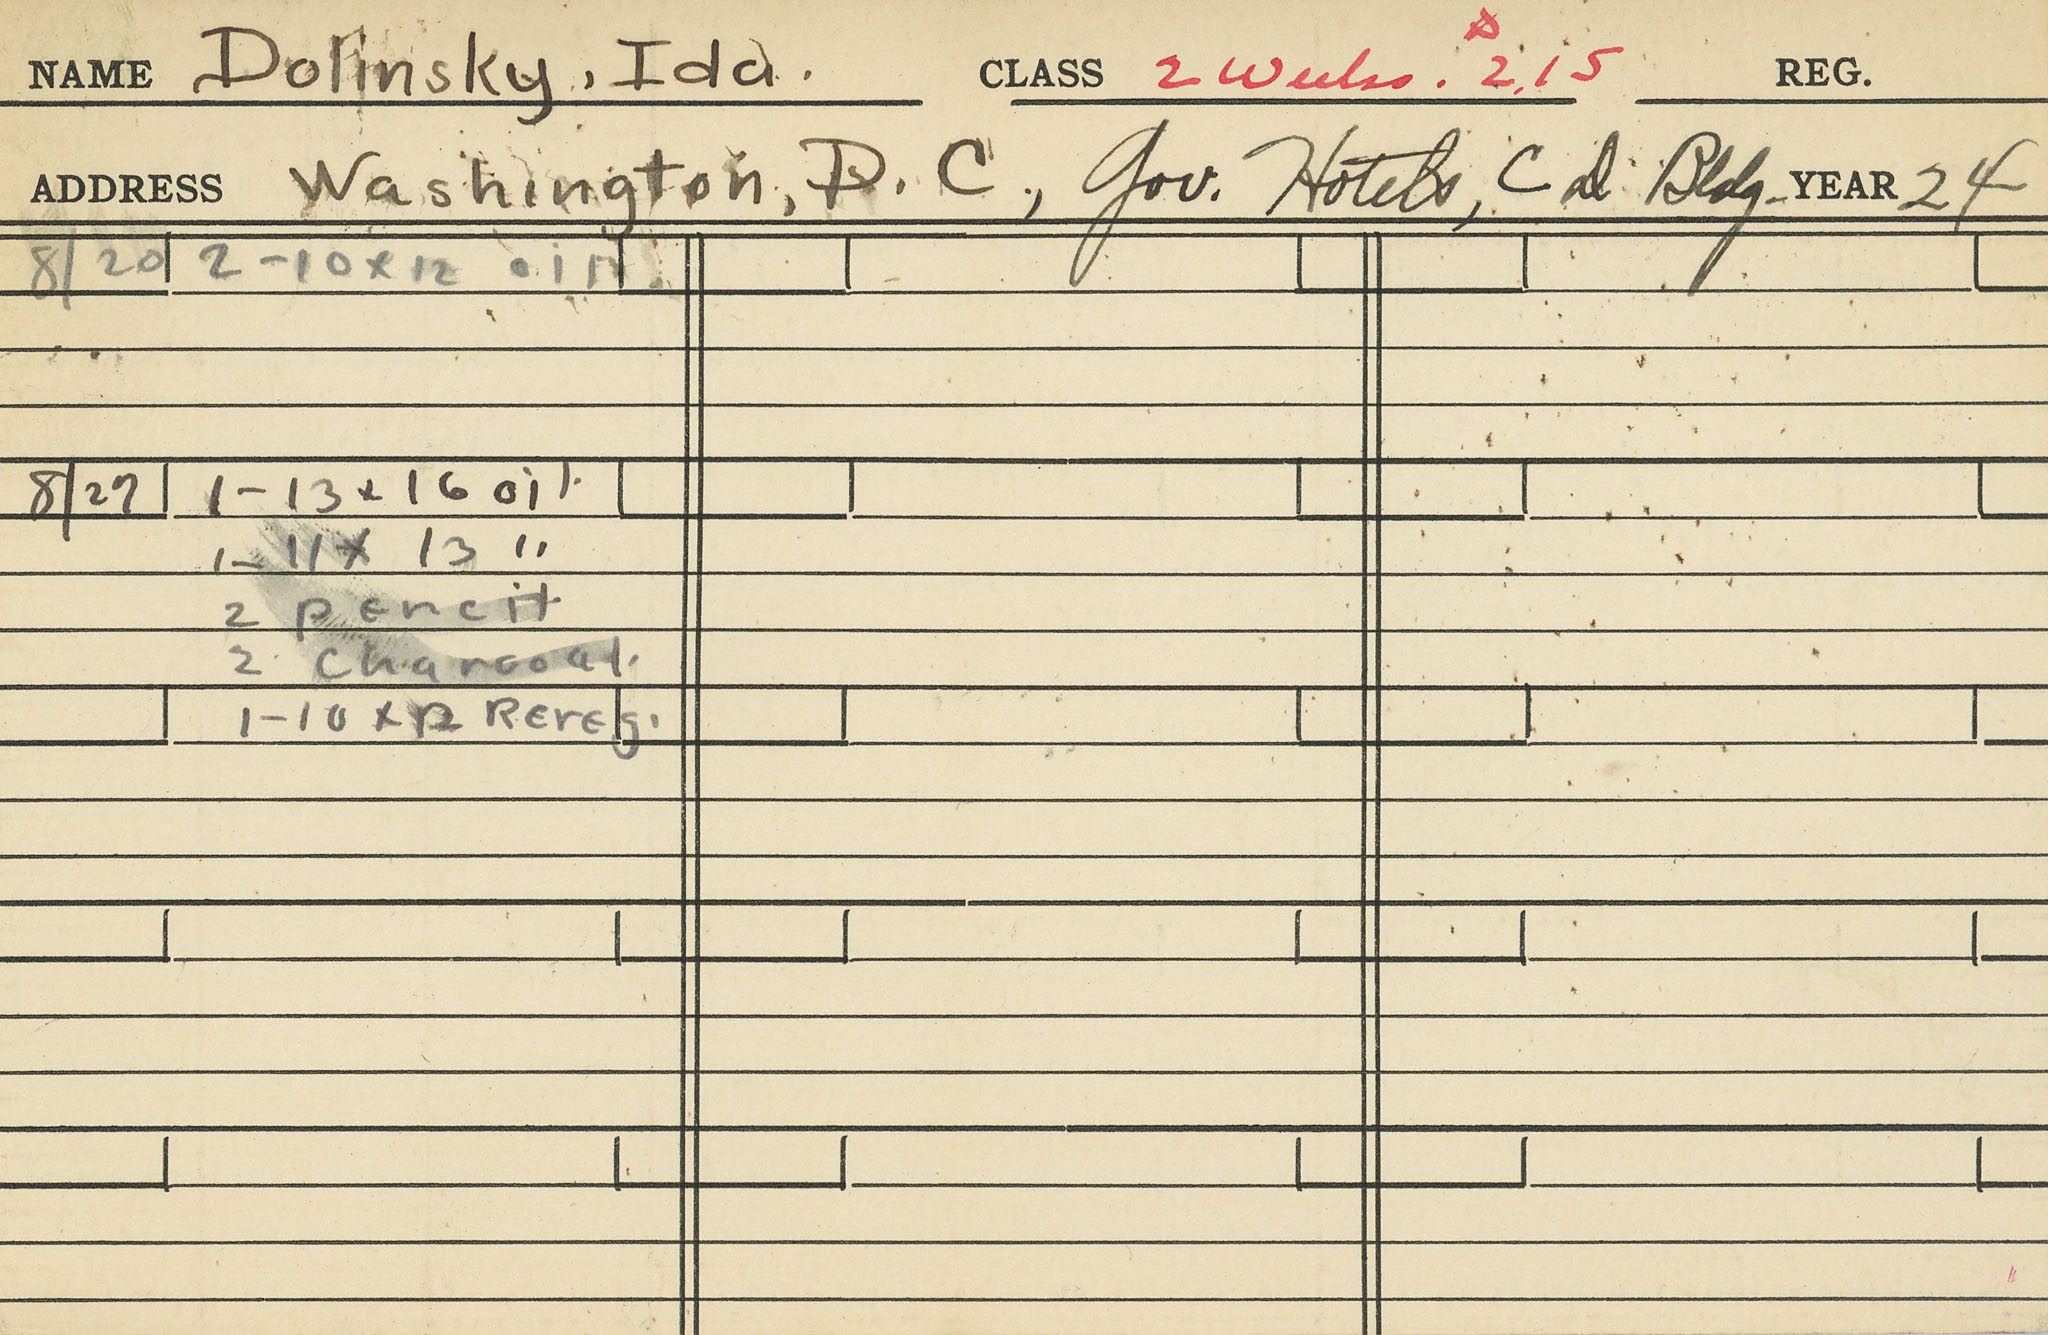 NAME Dolinsky, Ida. CLASS 2 Weeks. $2.15 REG.
ADDRESS Washington, D. C., Gov. Hotels, C d Bldg. YEAR 24
8/20 2-10x12 oil
8/27 1-13x16 oil.
1-11x13 "
2 pencil
2 charcoal.
1-10x12 Rereg.